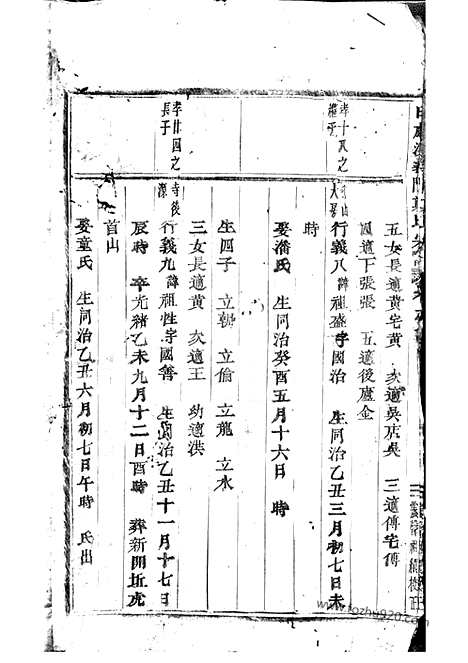 五女長適黃宅黃 次適吳店吳 三適傅宅傅
四適下張張 五適後盧金
孝十八之
繼子
行義八諱祖盛字國治 生同治乙丑三月初七日未
時
娶潘氏 生同治癸酉五月十六日 時
生四子 立朝 立倫 立龍 立水
三女長適黃 次適王 幼適洪
孝廿四之
長子
行義九諱祖性字國善 生同治乙丑十一月十七日
辰時 卒光緒乙未九月十二日酉時 葬新開坵虎
首山
娶童氏 生同治乙丑六月初七日午時 氏出
www.fozhu920.com